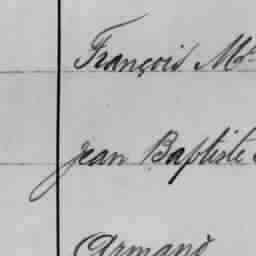 François
Jean Baptiste
Armand